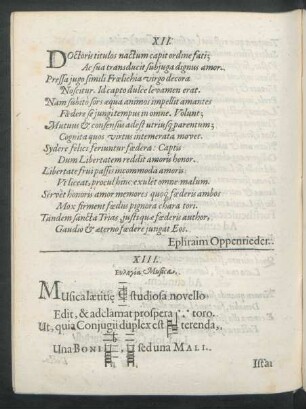 XII.
DOctoris titulos nactum capit ordine fati;
Ac sua transducit subjuga dignus amor.
Pressa jugo simili Frœlichia virgo decora
Noscitur. Id capto dulce levamen erat.
Nam subitò sors equa animos impellit amantes
Fœdere se jungi tempus in omne. Volunt;
Mutuus & consensus adest utriusq; parentum;
Cognita quos virtus intemerata movet.
Sydere felici feriuntur fœdera: Captis
Dum Libertatem reddit amoris honor.
Libertate frui passis incommoda amoris
Ut liceat, procul hinc exulet omne malum.
Servet honoris amor memores quoq; fœderis ambos
Mox firment fœdus pignora chara tori.
Tandem sancta Trias, justi quæ fœderis author,
Gaudio & æterno fœdere jungat Eos.
Ephraim Oppentieder.
XIII.
Musica.
Musica lætitiæ studiosa novello
Edit, & adclamat prospera toro.
Ut, quia Conjugii duplex est terenda,
Una BONI, sed una MALI.
Ista